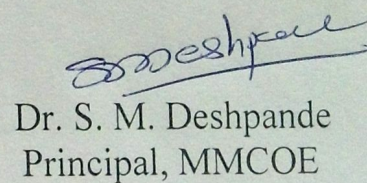 SMDeshpande
Dr. S. M. Deshpande
Principal, MMCOE